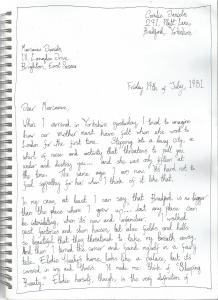 Coralie Daniels
291, Platt Lane,
Bradford, Yorkshire
Marianne Daniels
111 Longdon Drive
Brighton, East Sussex
Friday 19th of July, 1981
Dear Marianne,
When I arrived in Yorkshire yesterday, I tried to imagine
how our mother must have felt when she went to
London for the first time. Stepping into a busy city, a
whirl of noise and activity that threatens to pull you
under and destroy you... and she was only fifteen at
the time. The same age I am now. It's hard not to
feel sympathy for her when I think of it like that.
In my case, at least I can say that Bradford is bigger
than the place where I grew up... but any place can
be intimidating when it's new and unfamiliar. I walked
past factories and shoe houses, but also fields and hills
so beautiful that they threatened to take my breath away.
And then I turned the corner and found myself in a fairy
tale. Elodie's home looks like a palace, but it's
covered in ivy and thorns. It made me think of "Sleeping
Beauty." Elodie herself, though, is the very definition of